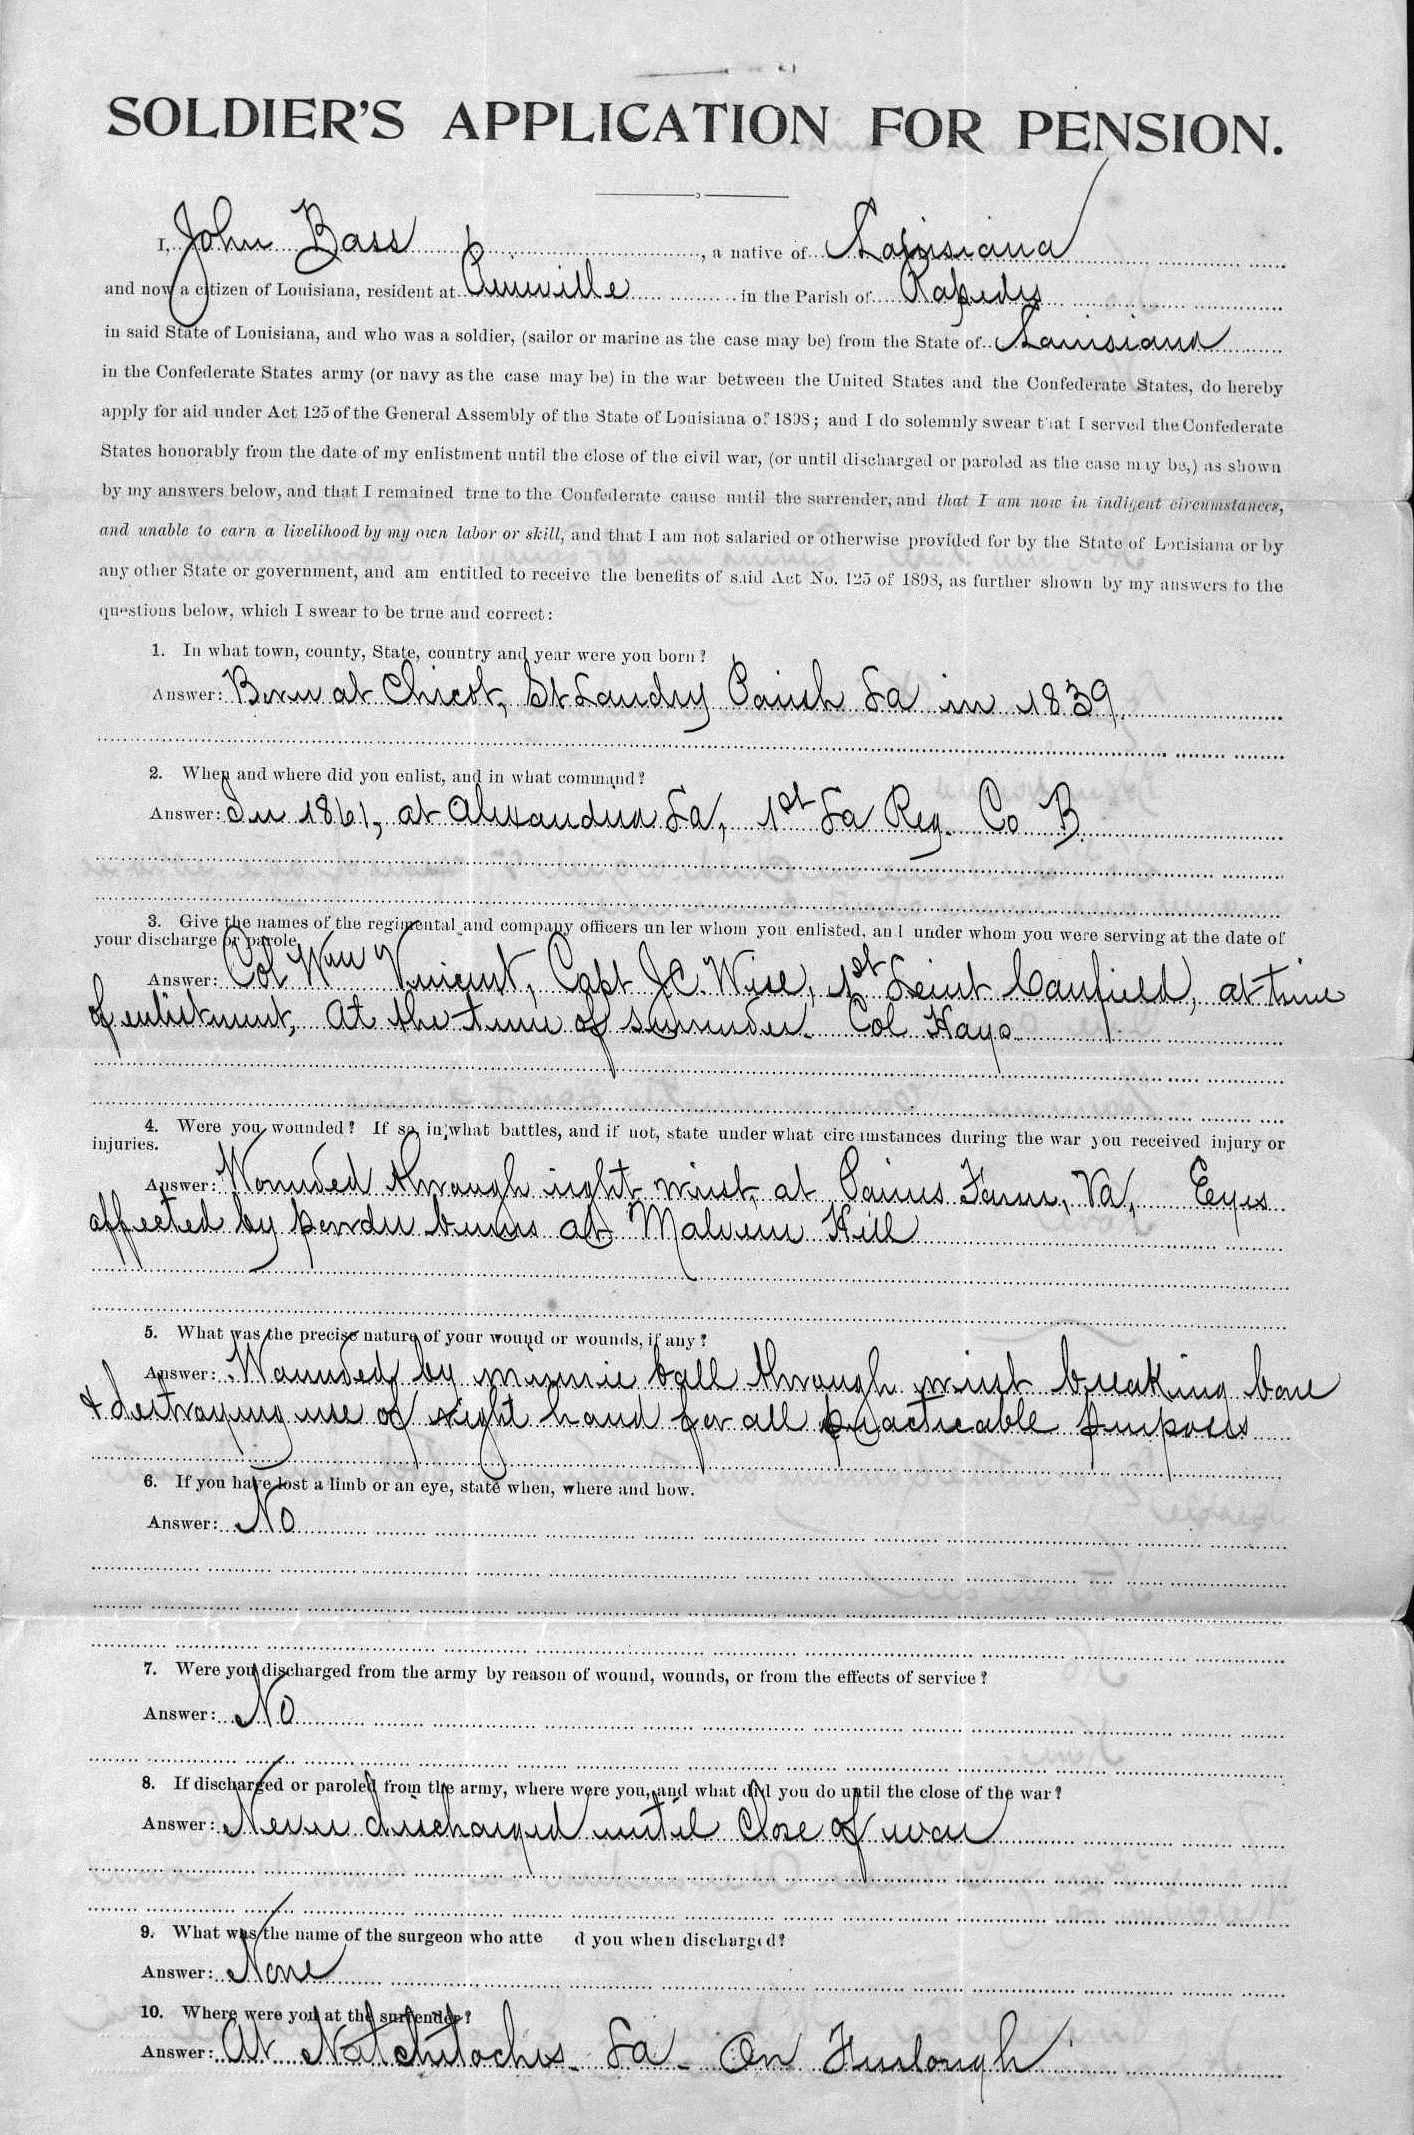 SOLDIER'S APPLICATION FOR PENSION.
I, John Bass, a native of Louisiana
and now a citizen of Louisiana, resident at Pineville in the Parish of Rapides
in said State of Louisiana, and who was a soldier, (sailor or marine as the case may be) from the State of Louisiana
in the Confederate States army (or navy as the case may be) in the war between the United States and the Confederate States, do hereby
apply for aid under Act 125 of the General Assembly of the State of Louisiana of 1898; and I do solemnly swear that I served the Confederate
States honorably from the date of my enlistment until the close of the civil war, (or until discharged or paroled as the case may be,) as shown
by my answers below, and that I remained true to the Confederate cause until the surrender, and that I am now in indigent circumstances,
and unable to earn a livelihood by my own labor or skill, and that I am not salaried or otherwise provided for by the State of Louisiana or by
any other State or government, and am entitled to receive the benefits of said Act No. 125 of 1898, as further shown by my answers to the
questions below, which I swear to be true and correct:
1. In what town, county, State, country and year were you born?
Answer: Born at Chicot, St Landry Parish La in 1839.
2. When and where did you enlist, and in what command?
Answer: In 1861, at Alexandria La, 1st La Reg. Co B.
3. Give the names of the regimental and company officers under whom you enlisted, and under whom you were serving at the date of
your discharge or parole.
Answer: Col Wm Vincent, Capt J.C. Wise, 1st Leiut Canfield, at time
of enlistment, At the time of surrender. Col Hays
4. Were you wounded? If so, in what battles, and if not, state under what circumstances during the war you received injury or
injuries.
Answer: Wounded through right wrist, at Pains Farm, Va, Eyes
affected by powder burns at Malvern Hill
5. What was the precise nature of your wound or wounds, if any?
Answer: Wounded by minnie ball through wrist breaking bone
& destroying use of right hand for all practicable purposes
6. If you have lost a limb or an eye, state when, where and how.
Answer: No
7. Were you discharged from the army by reason of wound, wounds, or from the effects of service?
Answer: No
8. If discharged or paroled from the army, where were you, and what did you do until the close of the war?
Answer: Never discharged until close of war
9. What was the name of the surgeon who atte d you when discharged?
Answer: None
10. Where were you at the surrender?
Answer: At Natchitoches La - On Furlough